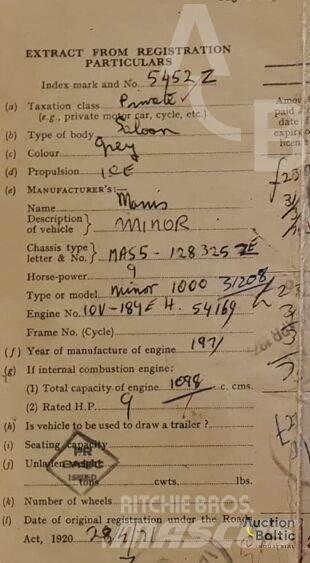 EXTRACT FROM REGISTRATION
PARTICULARS
Index mark and No. 5452 Z
(a) Taxation class Private
(e.g., private motor car, cycle, etc.)
(b) Type of body Saloon
(c) Colour Grey
(d) Propulsion ICE
(e) MANUFACTURER'S:—
Name Morris
Description of vehicle } MINOR
Chassis type letter & No. } MAS5 - 128325 ZE
Horse-power 9
Type or model Minor 1000 31208
Engine No. 10V-189E H. 54169
Frame No. (Cycle)
(f) Year of manufacture of engine 1971
(g) If internal combustion engine:
(1) Total capacity of engine 1098 c. cms.
(2) Rated H.P. 9
(h) Is vehicle to be used to draw a trailer?
(i) Seating capacity
(j) Unladen weight
tons cwts. lbs.
(k) Number of wheels
(l) Date of original registration under the Roads
Act, 1920
ISSUED
RITCHIE BROS.
MASCUS
Auction
Baltic
INDUSTRIAL